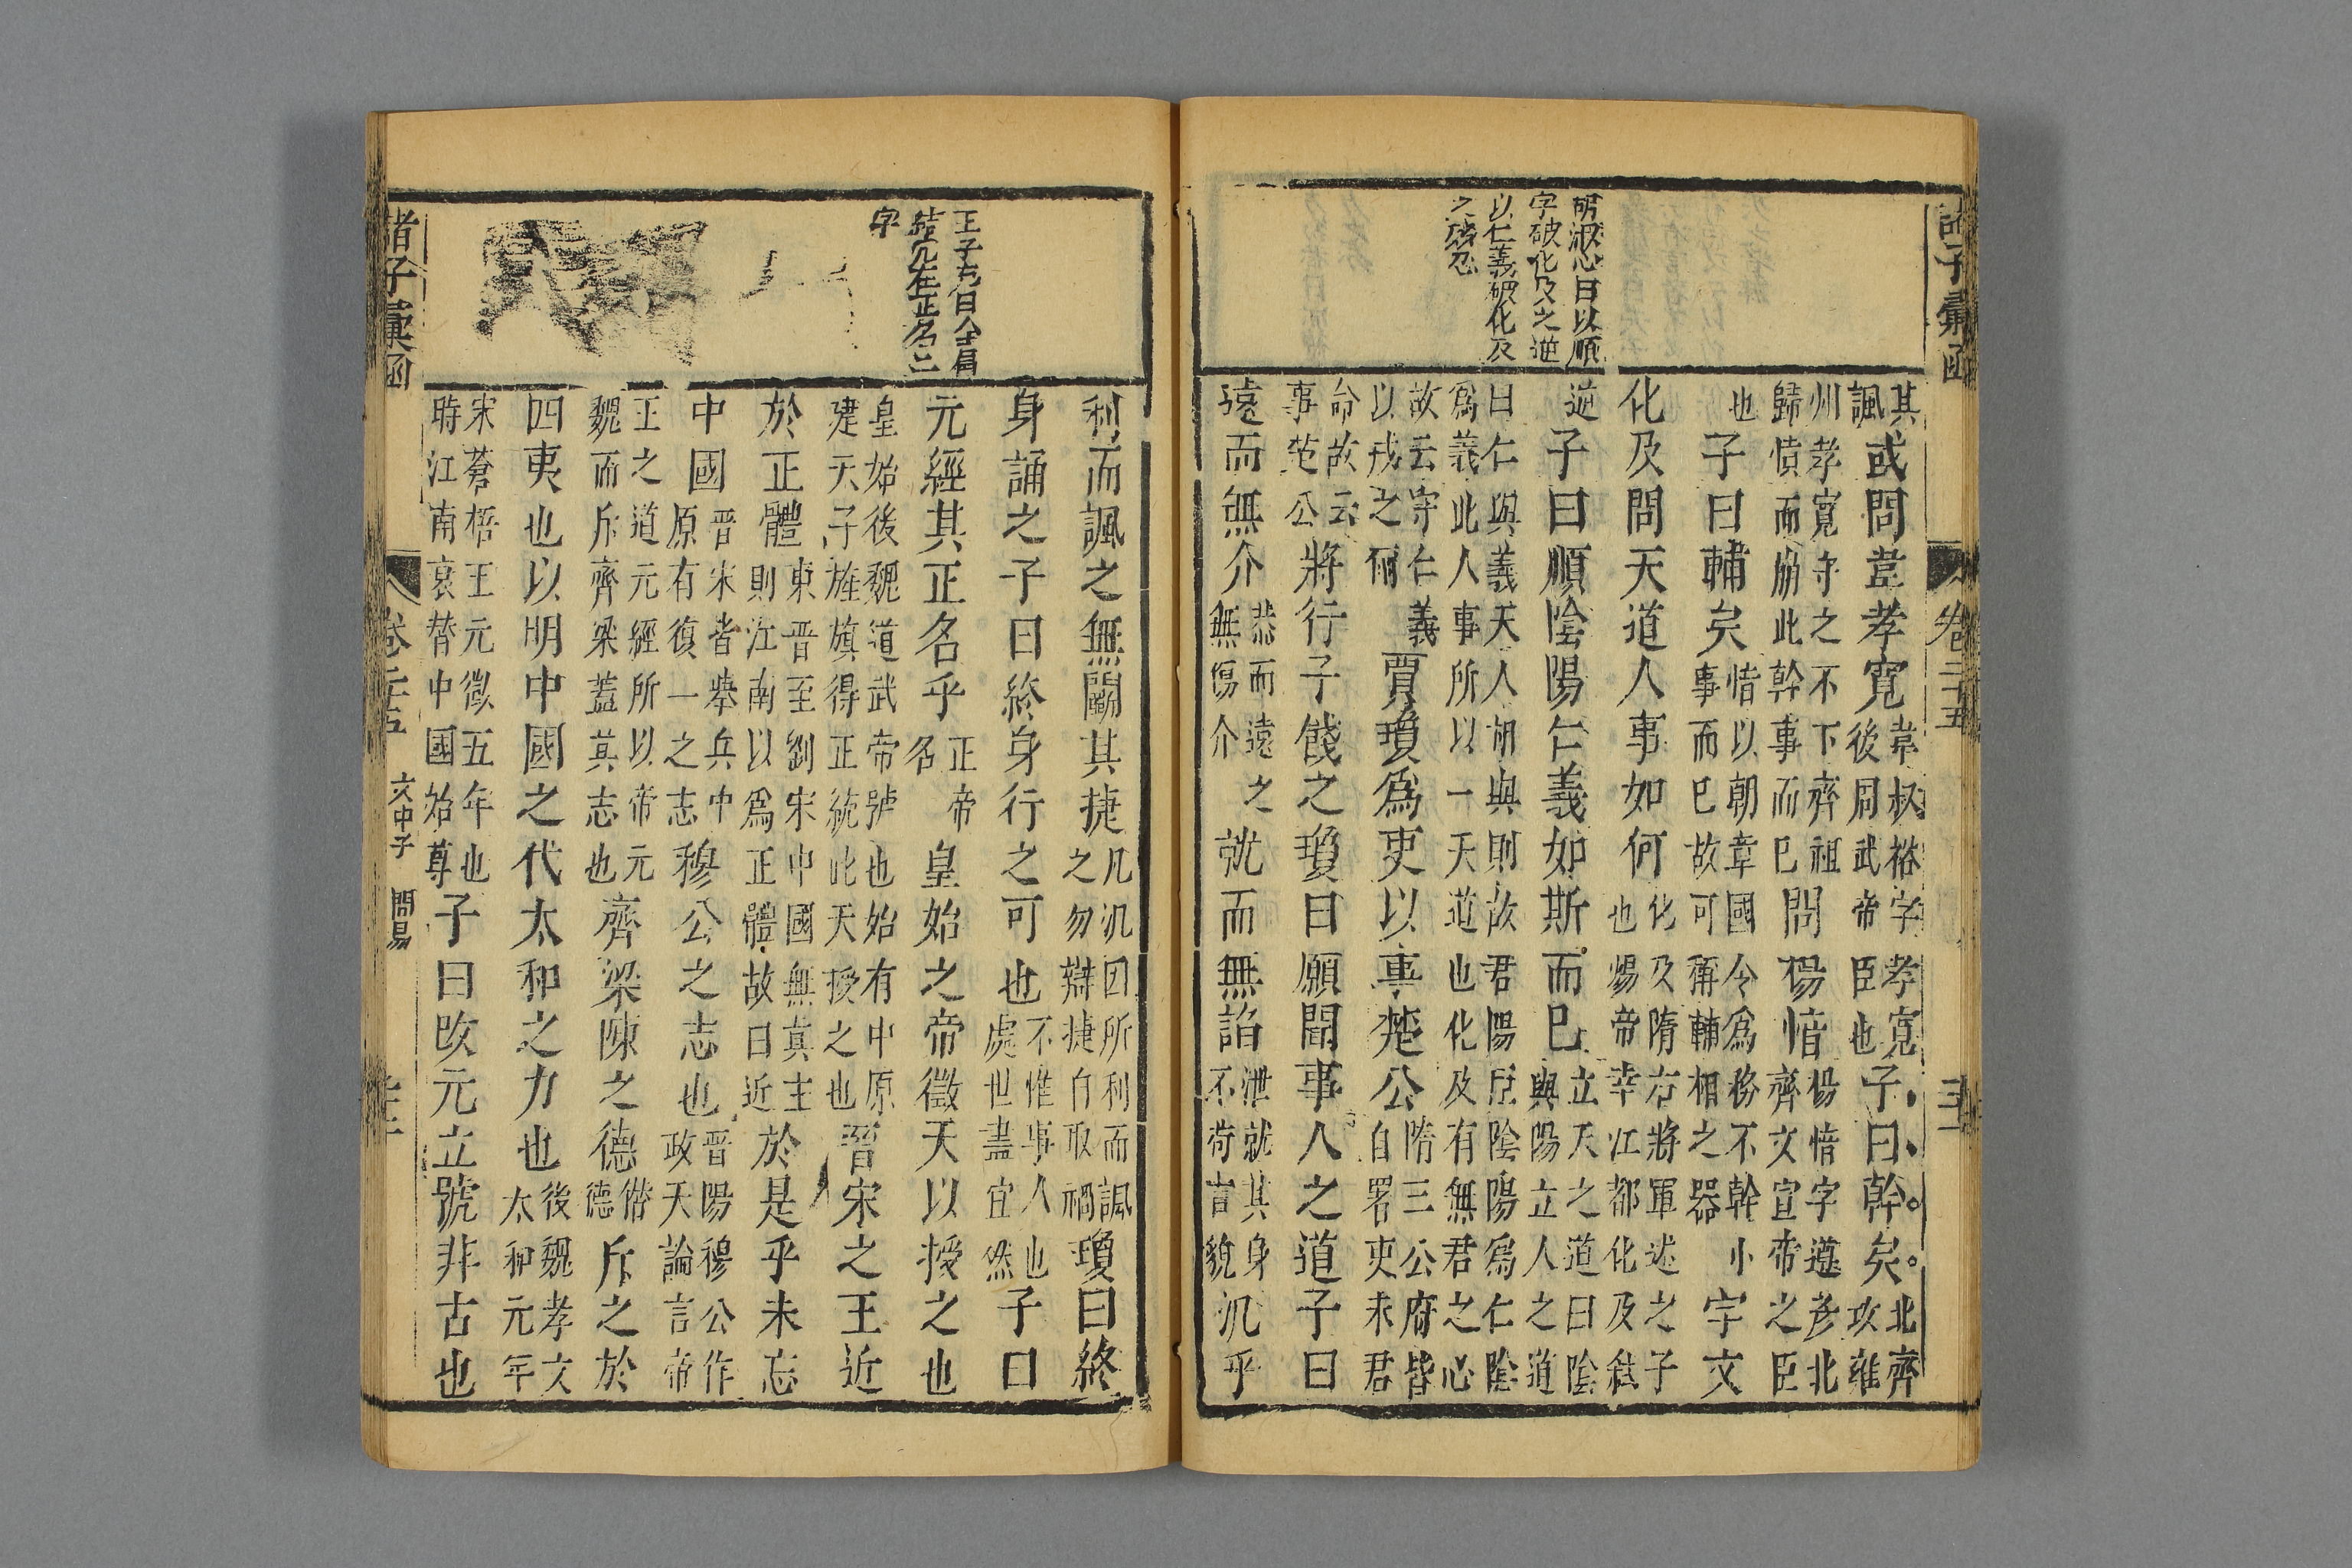 諸子彙函
卷二十五
胡淑心曰以順
字破化及之逆
以仁義破化及
之殘忍
其諷或問韋孝寬韋叔裕字孝寬後周武帝臣也子曰幹矣北齊攻雍
州孝寬守之不下齊祖歸憤而崩此幹事而巳問楊愔楊愔字遵彥北齊文宣帝之臣
也子曰輔矣愔以朝章國令為務不幹小事而巳故可稱輔相之器宇文
化及問天道人事如何化及隋右將軍述之子也煬帝幸江都化及弒
逆子曰順陰陽仁義如斯而巳立天之道曰陰與陽立人之道
曰仁與義天人胡與則故君陽臣陰陽爲仁陰爲義此人事所以一天道也化及有無君之心
故云守仁義以戒之爾賈瓊爲吏以事楚公隋三公府皆自署吏未君
命故云事楚公將行子餞之瓊曰願聞事人之道子曰
遠而無介恭而遠之無傷介就而無諂泄就其身不苟言貌汎乎
王子充曰全扃
結穴在正名二
字
利而諷之無鬬其捷凡汎因所利而諷之勿辯捷自取禍瓊曰終
身誦之子曰終身行之可也不惟事人也處世盡宜然子曰
元經其正名乎正帝名皇始之帝徵天以授之也
皇始後魏道武帝號也始有中原建天子旌旗得正統此天授之也晉宋之王近
於正體東晉至劉宋中國無真主則江南以爲正體故曰近於是乎未忘
中國晉宋者舉兵中原有復一之志穆公之志也晉陽穆公作政天論言帝
王之道元經所以帝元魏而斥齊梁蓋其志也齊梁陳之德僣德斥之於
四夷也以明中國之代太和之力也後魏孝文太和元年
宋蒼梧王元徽五年也時江南衰替中國始尊子曰改元立號非古也
諸子彙函
卷二十五 文中子 問易